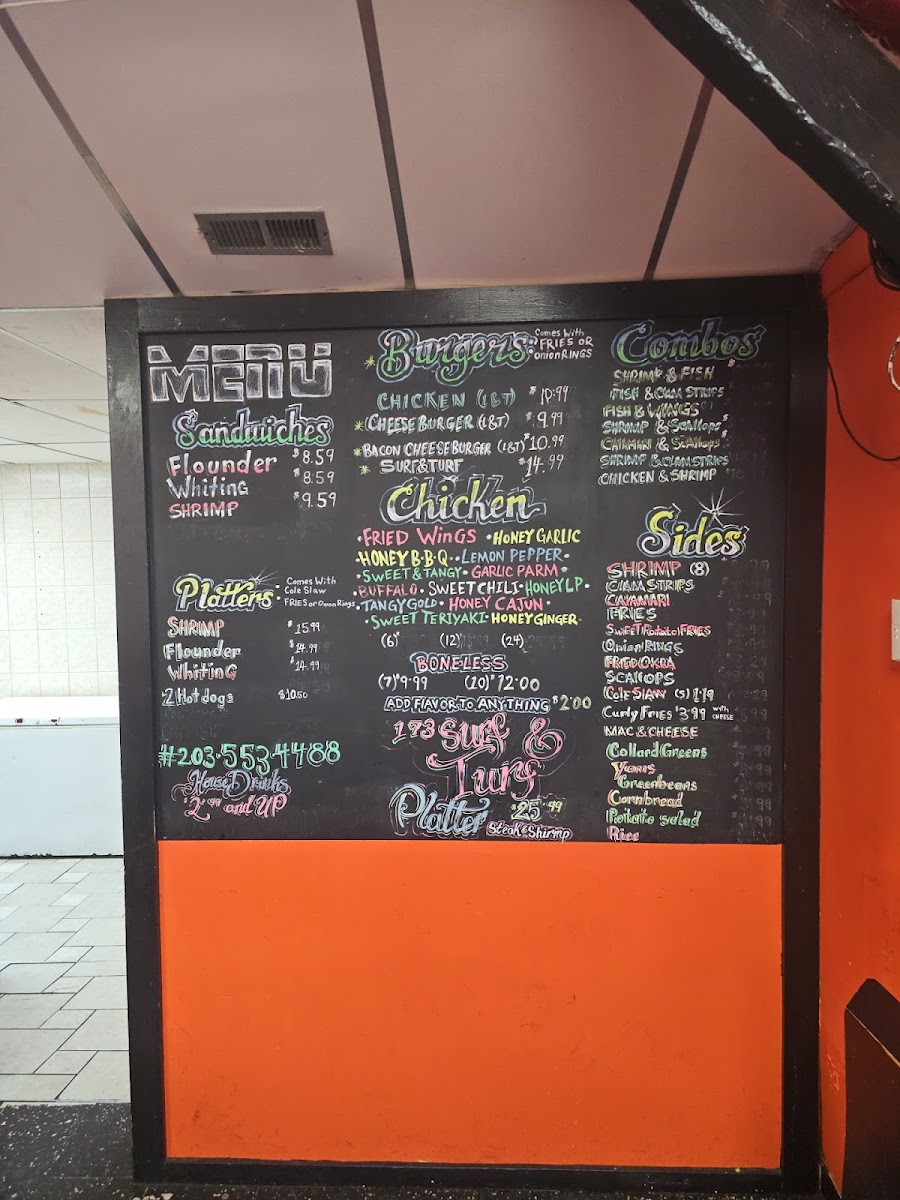 MENU
Sandwiches
Flounder $8.59
Whiting $8.59
SHRIMP $9.59
Platters
Comes With
Cole Slaw
FRIES or Onion Rings
SHRIMP $15.99
Flounder $14.99
WHITING $14.99
2 Hotdogs $10.50
#203-553-4488
House Drinks
$2.99 and UP
Burgers:
Comes With
FRIES OR
Onion RINGS
CHICKEN (L&T) $10.99
CHEESEBURGER (L&T) $9.99
BACON CHEESEBURGER (L&T) $10.99
SURF&TURF $14.99
Chicken
FRIED WINGS • HONEY GARLIC
HONEY B•B•Q • LEMON PEPPER
SWEET & TANGY • GARLIC PARM
BUFFALO • SWEET CHILI • HONEY LP
TANGY GOLD • HONEY CAJUN
SWEET TERIYAKI • HONEY GINGER
(6) (12) (24)
BONELESS
(7) $9.99 (10) $12.00
ADD FLAVOR TO ANYTHING $2.00
173 Surf &
Turf
Platter $25.99
Steak & Shirmp
Combos
SHRIMP & FISH
FISH & CLAM STRIPS
FISH & WINGS
SHRIMP & Scallops
CALAMARI & Scallops
SHRIMP & CLAM STRIPS
CHICKEN & SHRIMP
Sides
SHRIMP (8)
CLAM STRIPS
CALAMARI
FRIES
SWEET Potato FRIES
Onion RINGS
FRIED OKRA
SCALLOPS
Cole SLAW (S) 1.19
Curly FRIES $3.99 with CHEESE
MAC & CHEESE
Collard Greens
Yams
Greenbeans
Cornbread
Potato salad
Rice